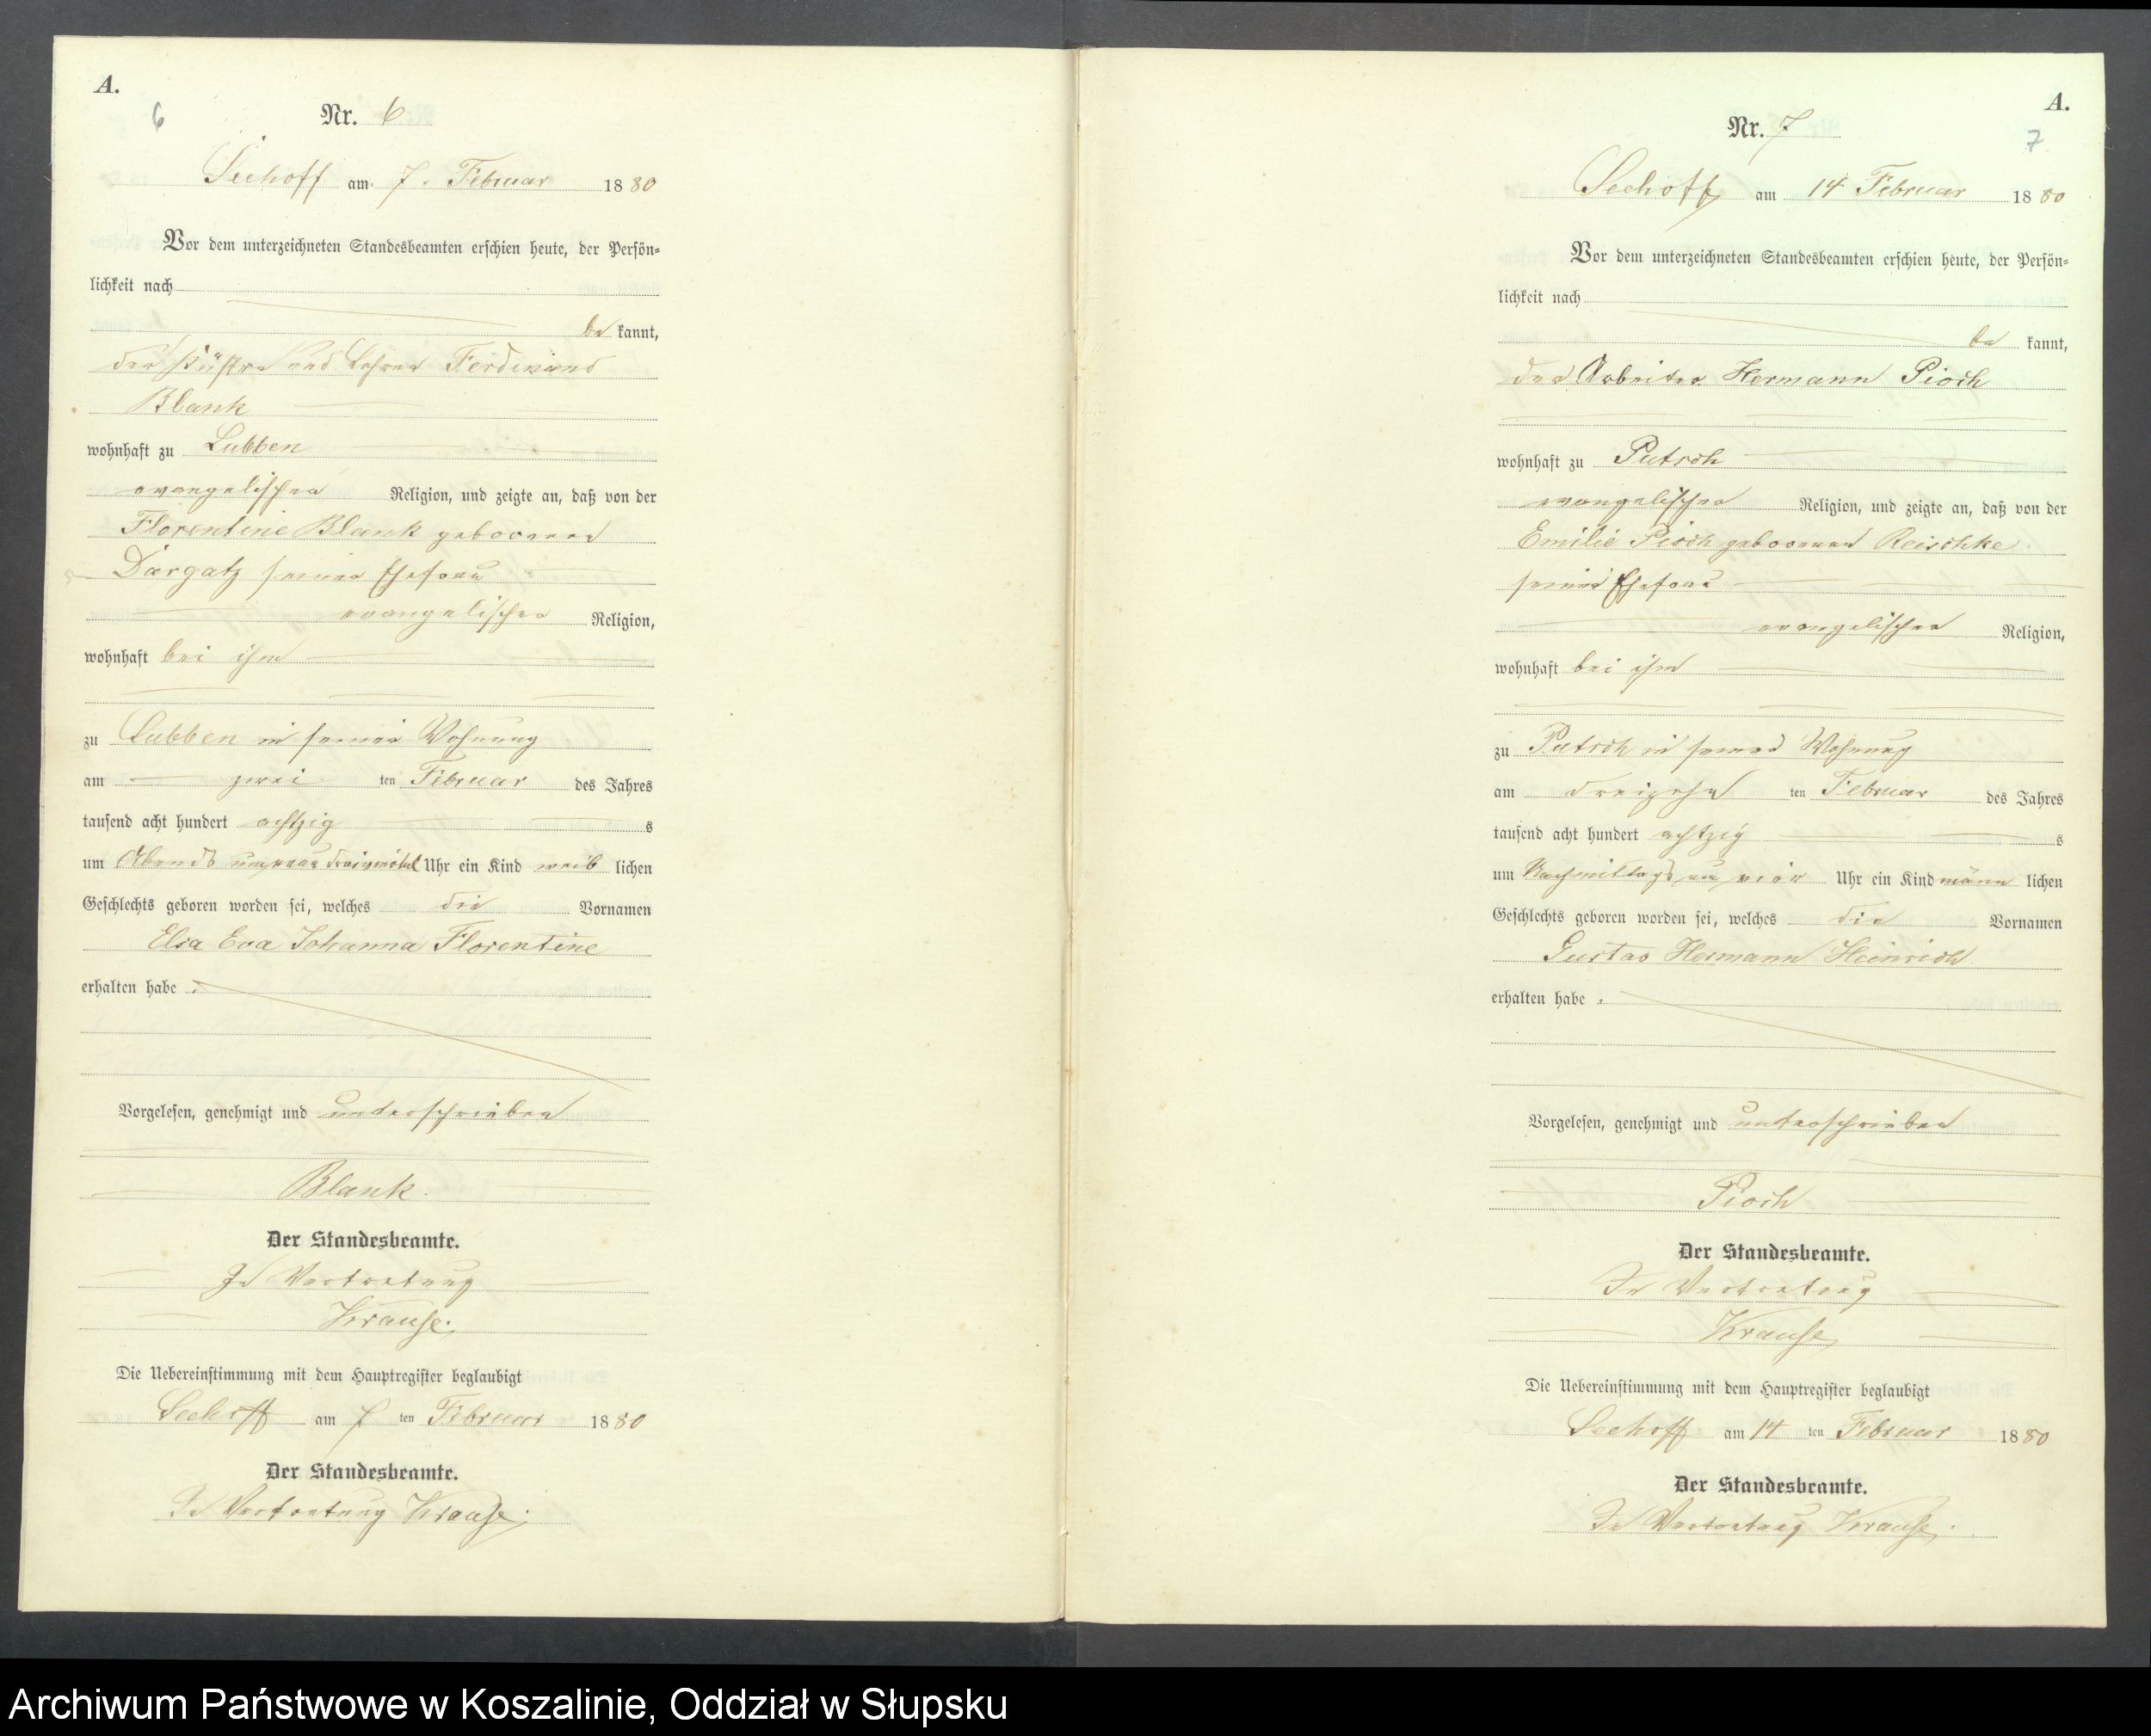 A.
6
Nr. 6
Seehoff am 7. Februar 1880
Vor dem unterzeichneten Standesbeamten erschien heute, der Persön=
lichkeit nach
be kannt,
der Küster und Lehrer Ferdinand
Blank
wohnhaft zu Lubben
evangelischer Religion, und zeigte an, daß von der
Florentine Blank geborenen
Dargatz seiner Ehefrau
evangelischer Religion,
wohnhaft bei ihm
zu Lubben in seiner Wohnung
am zwei ten Februar des Jahres
tausend acht hundert achtzig s
um Abends um dreiviertel Uhr ein Kind weib lichen
Geschlechts geboren worden sei, welches die Vornamen
Elsa Eva Johanna Florentine
erhalten habe .
Vorgelesen, genehmigt und unterschrieben
Blank.
Der Standesbeamte.
In Vertretung
Krause.
Die Uebereinstimmung mit dem Hauptregister beglaubigt
Seehoff am 7 ten Februar 1880
Der Standesbeamte.
In Vertretung Krause.
A.
7
Nr. 7
Seehoff am 14 Februar 1880
Vor dem unterzeichneten Standesbeamten erschien heute, der Persön=
lichkeit nach
be kannt,
der Arbeiter Hermann Pioch
wohnhaft zu Putsch
evangelischer Religion, und zeigte an, daß von der
Emilie Pioch geborenen Reischke
seiner Ehefrau
evangelischer Religion,
wohnhaft bei ihm
zu Putsch in seiner Wohnung
am dreizehn ten Februar des Jahres
tausend acht hundert achtzig s
um Nachmittags um vier Uhr ein Kind männ lichen
Geschlechts geboren worden sei, welches die Vornamen
Gustav Hermann Heinrich
erhalten habe .
Vorgelesen, genehmigt und unterschrieben
Pioch
Der Standesbeamte.
In Vertretung
Krause
Die Uebereinstimmung mit dem Hauptregister beglaubigt
Seehoff am 14 ten Februar 1880
Der Standesbeamte.
In Vertretung Krause.
Archiwum Państwowe w Koszalinie, Oddział w Słupsku